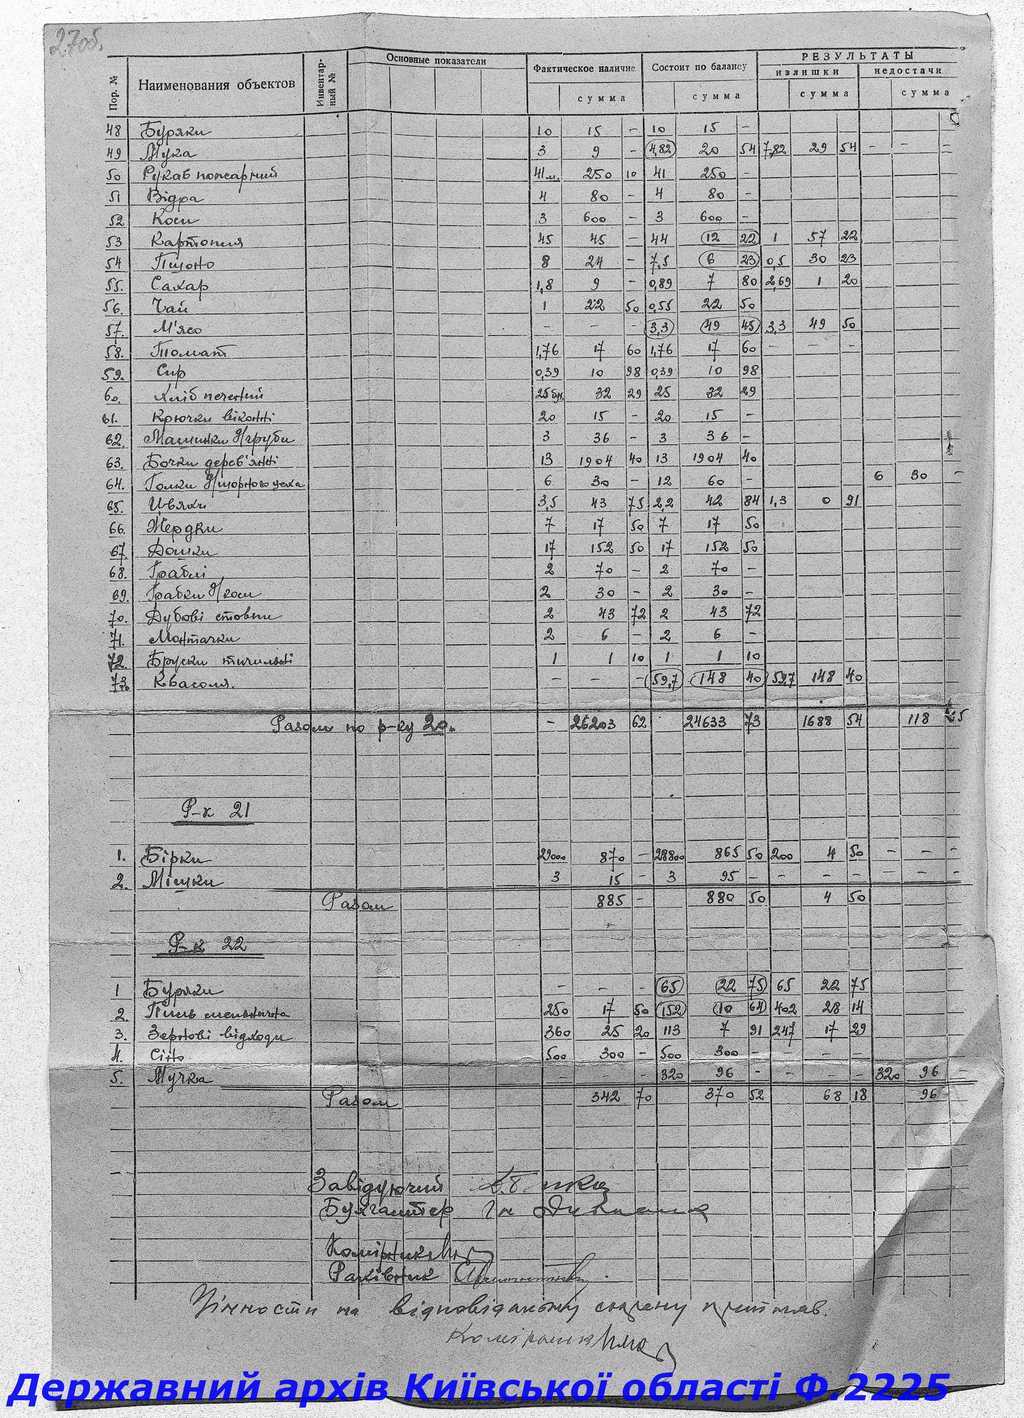 27об.
Пор. № Наименования объектов Инвентарный № Основные показатели Фактическое наличие Состоит по балансу РЕЗУЛЬТАТЫ
излишки недостачи
сумма сумма сумма сумма
48 Буряки 10 15 – 10 15 –
49 Мука 3 9 – 4,82 20 54 7,82 29 54 – – =
50 Рукав пожарний 41м. 250 10 41 250 –
51 Відра 4 80 – 4 80 –
52 Коси 3 600 – 3 600 –
53 Картопля 45 45 – 44 12 22 1 57 22
54 Пшоно 8 24 – 7,5 6 23 0,5 30 23
55. Сахар 1,8 9 – 0,89 7 80 2,69 1 20
56. Чай 1 22 50 0,55 22 50
57. М'ясо – – – 3,3 49 45 3,3 49 50
58. Томат 1,76 17 60 1,76 17 60 – – –
59. Сир 0,39 10 98 0,39 10 98
60. Хліб печений 25 32 29 25 32 29
61. Крючки віконні 20 15 – 20 15 –
62. Машинки д/груби 3 36 – 3 36 –
63. Бочки дерев'янні 13 1904 40 13 1904 40
64. Голки 6 30 – 12 60 – 6 30 –
65. Цвяхи 3,5 43 75 2,2 42 84 1,3 0 91
66. Жердки 7 17 50 7 17 50
67. Дошки 17 152 50 17 152 50
68. Граблі 2 70 – 2 70 –
69. Грабки д/коси 2 30 – 2 30 –
70. Дубові стовпи 2 43 72 2 43 72
71. Монтачки 2 6 – 2 6 –
72. Бруски точильні 1 1 10 1 1 10
73. Квасоля. – – – 59,7 148 40 59,7 148 40
Разом по р-ку 20. – 26203 62 24633 73 1688 54 118
Р-к 21
1. Бірки 29000 870 – 28800 865 50 200 4 50 – – –
2. Мішки 3 15 – 3 95 – – – – – – –
Разом 885 – 880 50 4 50
Р-к 22
1 Буряки – – – 65 22 75 65 22 75
2. Пиль 250 17 50 152 10 64 402 28 14
3. Зернові відходи 360 25 20 113 7 91 247 17 29
4. Сіно 500 300 – 500 300 – – – –
5. Мучка – – 320 96 – – – – 320 96 –
Разом 342 70 370 52 68 18 96 –
Завідуючий
Бухгалтер
Комірник
Рахівник
Цінности на відповідальному схорону прийняв.
Комірник
Державний архів Київської області Ф.2225